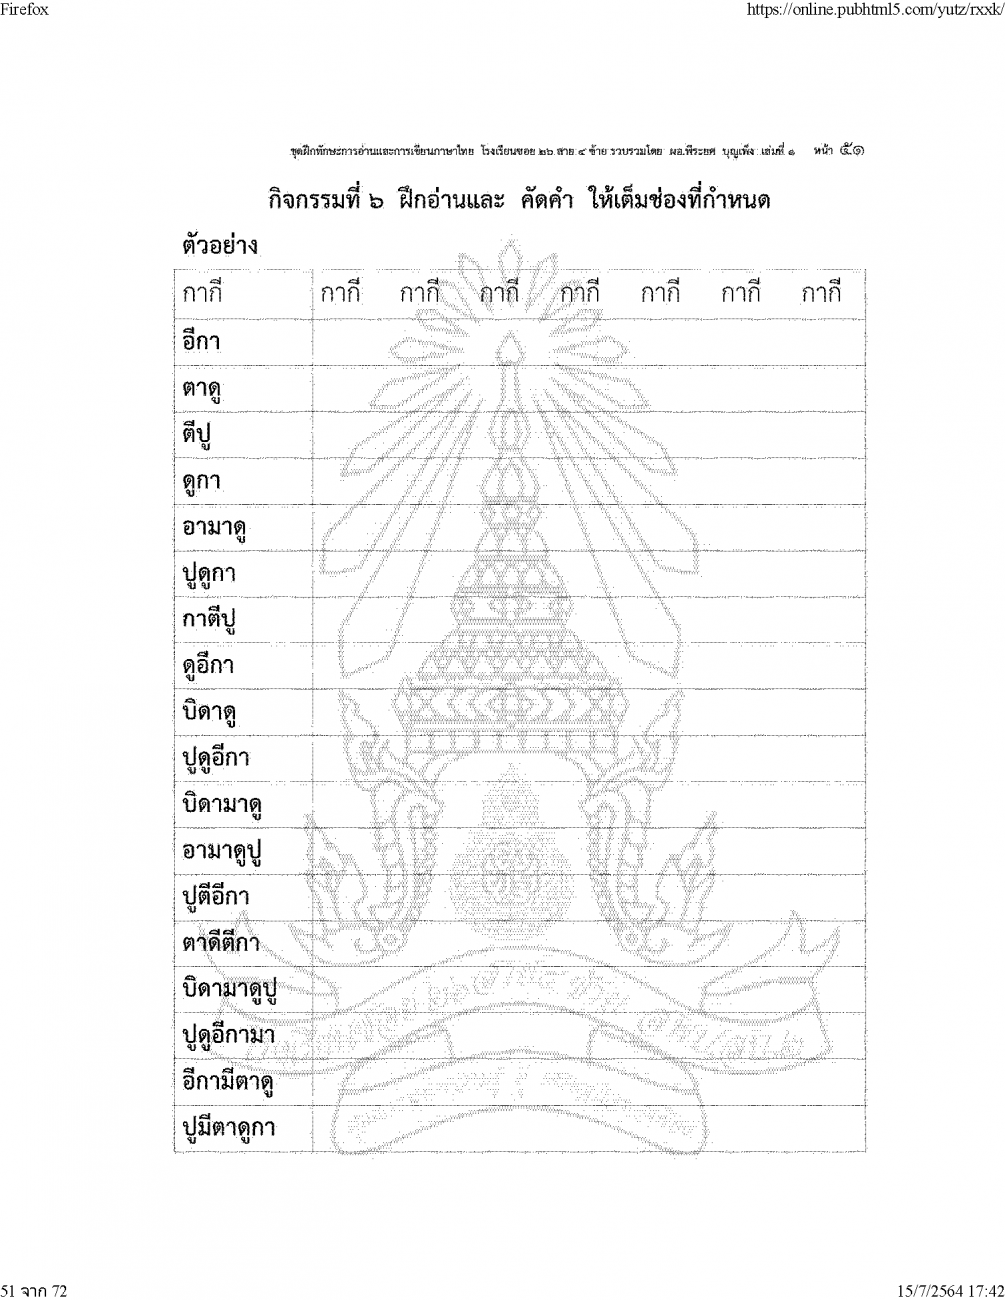 Firefox https://online.pubhtml5.com/yutz/rxxk/
ชุดฝึกทักษะการอ่านและการเขียนภาษาไทย โรงเรียนซอย ๒๖ สาย ๔ ซ้าย รวบรวมโดย ผอ.พีระยศ บุญเพ็ง เล่มที่ ๑ หน้า ๕๑
กิจกรรมที่ ๖ ฝึกอ่านและ คัดคำ ให้เต็มช่องที่กำหนด
ตัวอย่าง
กากี กากี กากี กากี กากี กากี กากี กากี
อีกา
ตาดู
ตีปู
ดูกา
อามาดู
ปูดูกา
กาตีปู
ดูอีกา
บิดาดู
ปูดูอีกา
บิดามาดู
อามาดูปู
ปูตีอีกา
ตาดีตีกา
บิดามาดูปู
ปูดูอีกามา
อีกามีตาดู
ปูมีตาดูกา
51 จาก 72 15/7/2564 17:42